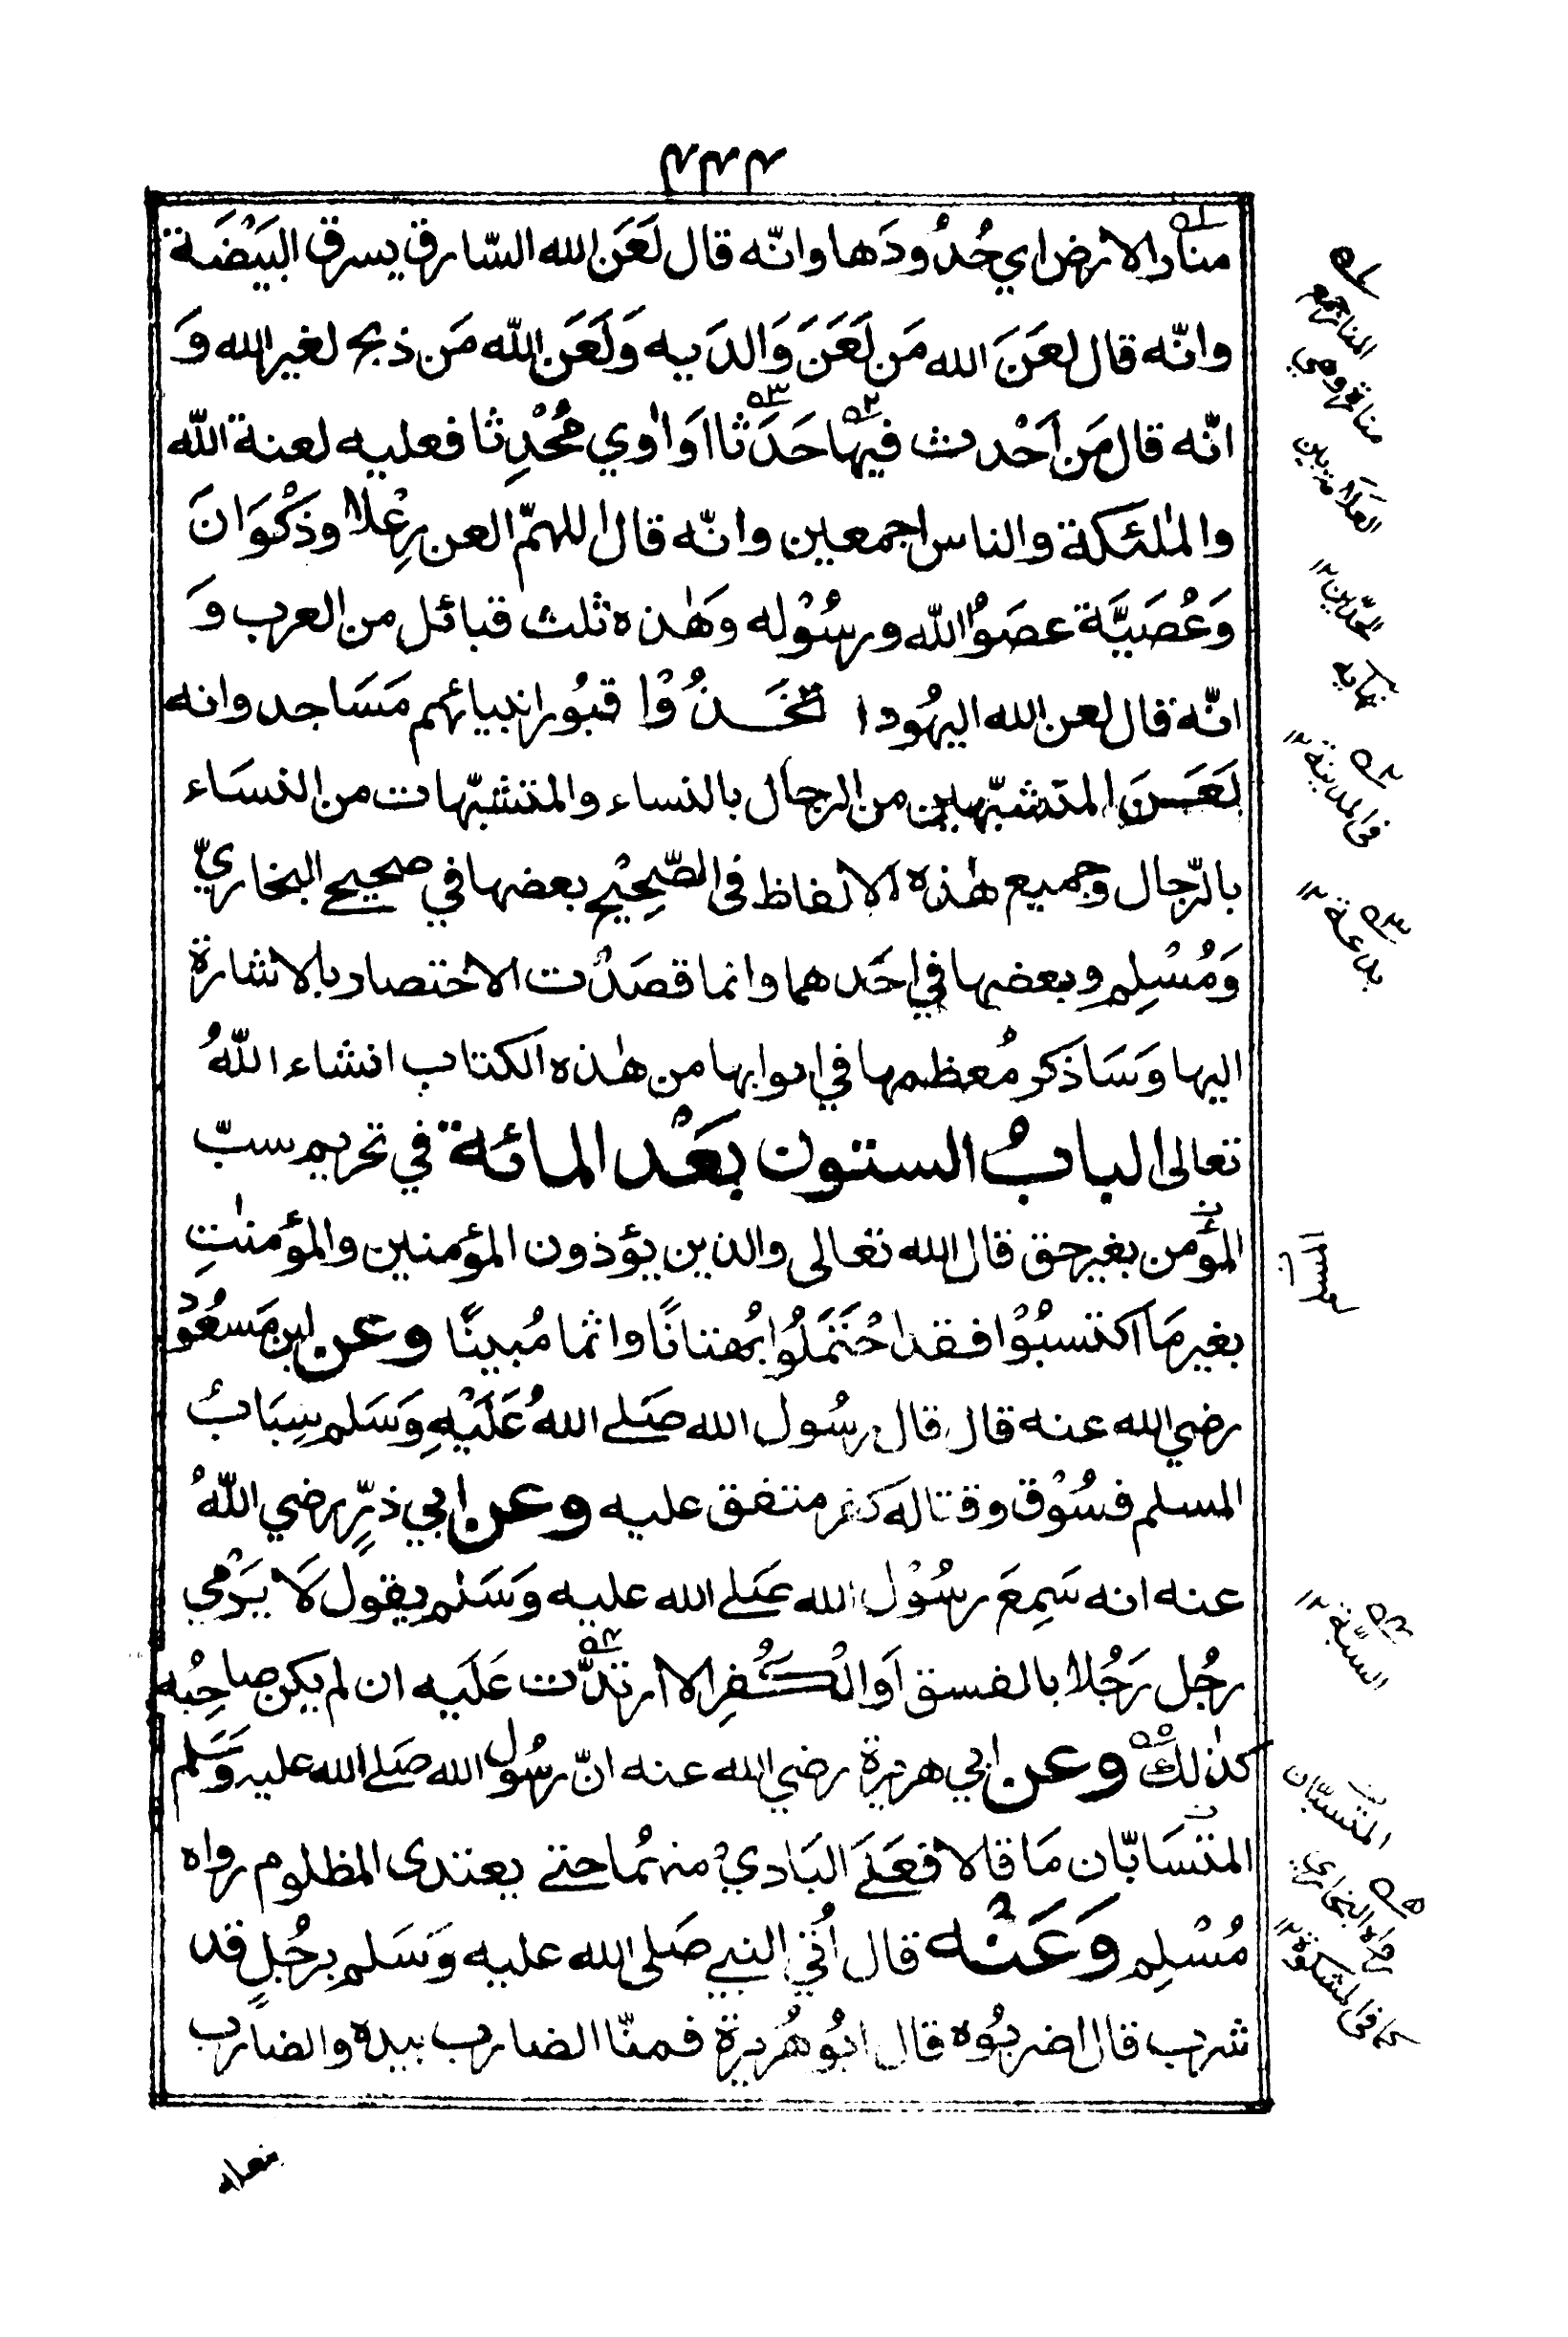 ٤٤٤
منار الارض اي حُدُودَها وانّه قال لَعَنَ الله السّارق يسرق البَيْضَة
وانّه قال لعَنَ الله مَن لَعَنَ وَالدَيه وَلَعَنَ اللّه مَن ذبح لغير الله وَ
انّه قال مَن اَحْدث فيها حَدَثا اَو اٰوي مُحْدِثا فعليه لعنة اللّه
والمٰلئكة والناس اجمعين وانّه قال اللهمّ العن رِعْلا وذَكْوَانَ
وَعُصَيَّة عصَوُا اللّه ورسُوْله وَهٰذه ثلث قبائل من العرب وَ
انّه قال لعن الله اليهُود اتّخَذُوْا قبُور انبيائهم مَسَاجد وانه
لَعَنَ المتشبّهين من الرجال بالنساء والمتشبّهات من النسَاء
بالرّجال وجميع هٰذه الالفاظ فى الصّحِيْح بعضها في صحيح البخاريّ
وَمُسْلِم وبعضها في احَدهما وانما قصَدْت الاختصار بالاشارة
اليها وَسَاذكر مُعظمها في ابوابها من هٰذه الكتاب انشاء اللّهُ
تعالى البابُ الستون بعَْد المائة في تحريم سبّ
المؤمن بغير حق قال الله تعالى والذين يؤذون المؤمنين والمؤمنٰتِ
بغير مَا اكتسبُوْا فقد احْتَمَلُوا بُهتانًا واثما مُبينًا وعن ابن مَسعُوْد
رضي الله عنه قال قال رسُول الله صَلى اللهُ عَلَيْهِ وَسَلم سِبَابُ
المسلم فسُوْق وقتاله كفر متفق عليه وعن ابي ذرٍّ رضي اللّهُ
عنه انه سَمِعَ رسُوْل الله صَلى الله عليه وَسَلم يقول لَا يَرْمي
رجُل رَجُلا بالفسق اَو الْكُفرِ الا ارتدّت عَلَيه ان لم يكن صاحِبُه
كذٰلك وعن ابي هريرة رضي الله عنه انّ رسُول الله صَلى الله عليه وَسَلم
المتسَابّان مَا قالا فعَلَى البَاديْ منهُما حتى يعتدى المظلوم رواه
مُسْلِم وَعَنْه قال اُتي النبي صَلى الله عليه وَسَلم برجُلٍ قد
شرب قال اضربُوه قال ابُو هُريرة فمنّا الضارب بيده والضارب
ه١
المنار جمع
منارة وهي
العلامة بين
الحدّين ١٢
نهايه
ه٢
فى المدينة ١٢
ه٣
بدعة ١٢
المسلم
ه٤
السبّة ١٢
المتسبّان
ه٥
رواه البخاري
كما فى المشكوة ١٢
بنعله